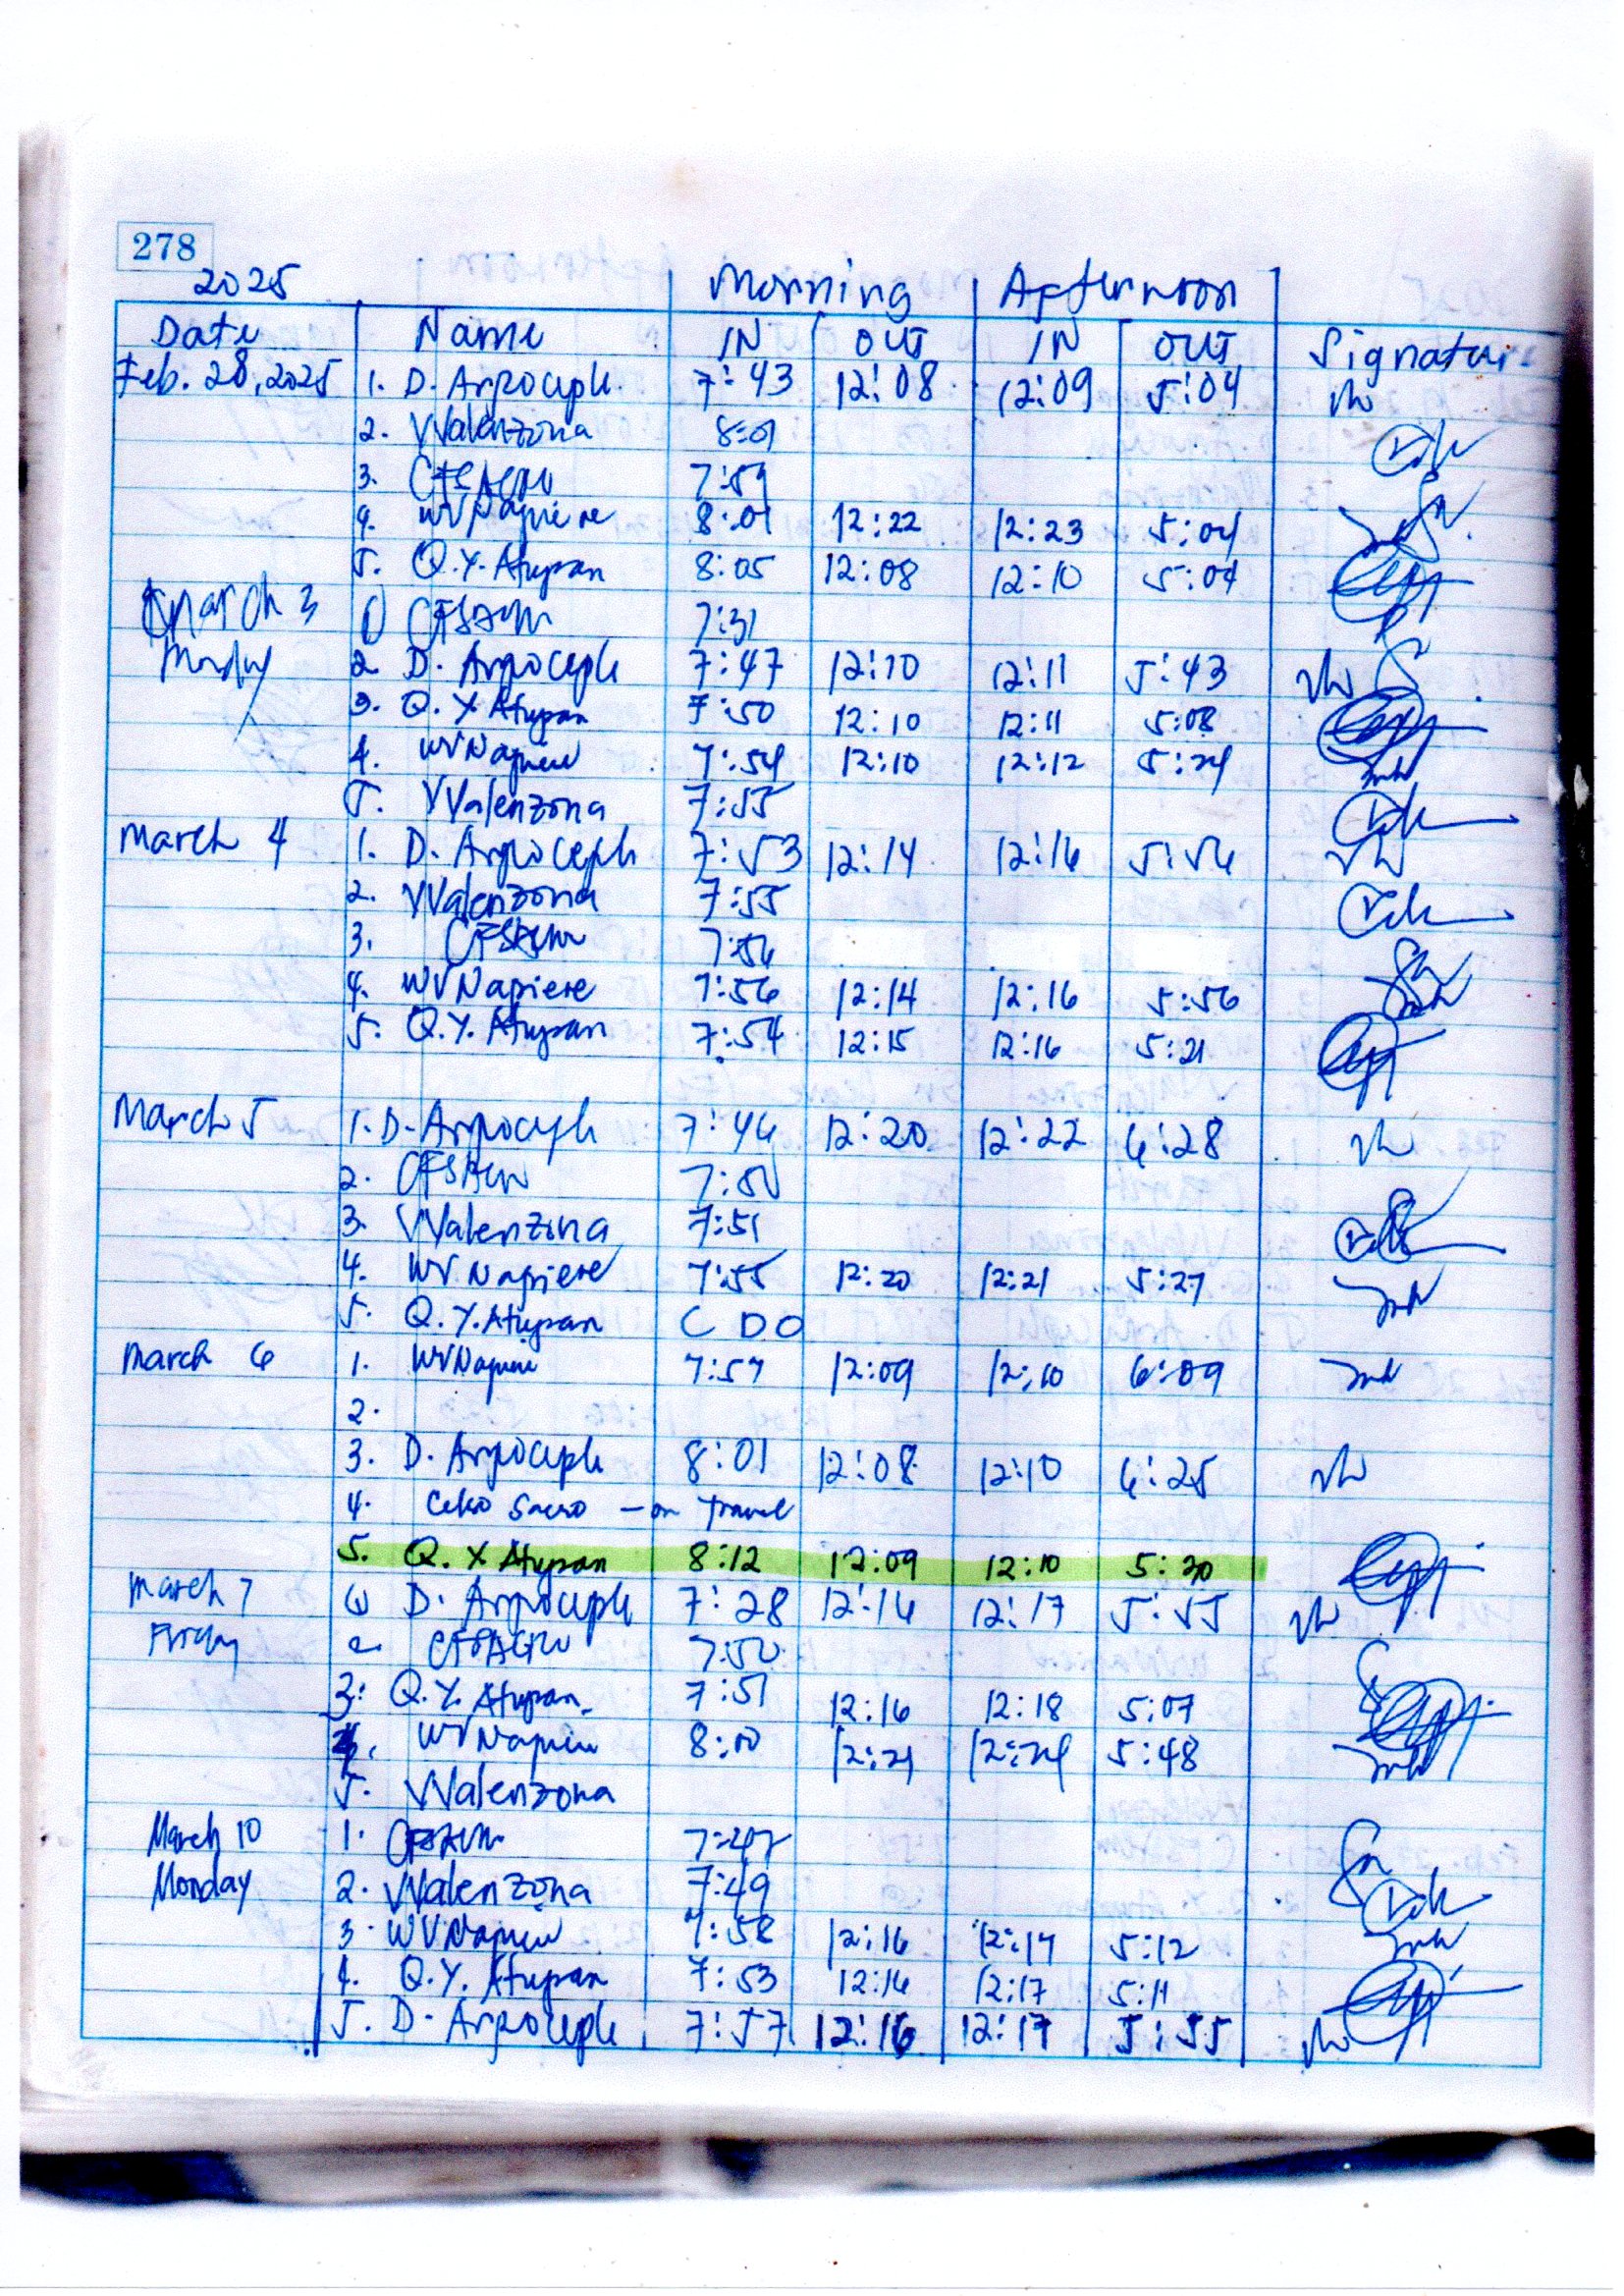 278
2025 Morning Afternoon
Date Name IN OUT IN OUT Signature
Feb. 28, 2025 1. D. 7:43 12:08 12:09 5:04
2. VValenzona 8:01
3. 7:59
4. WVNapiere 8:01 12:22 12:23 5:04
5. Q.Y. Atupan 8:05 12:08 12:10 5:04
March 3 1 7:31
Monday 2 D. 7:47 12:10 12:11 5:43
3. Q.Y Atupan 7:50 12:10 12:11 5:08
4. WVNapiere 7:54 12:10 12:12 5:24
5. VValenzona 7:55
March 4 1. D. 7:53 12:14 12:16 5:56
2. VValenzona 7:55
3. 7:56
4. WVNapiere 7:56 12:14 12:16 5:56
5. Q.Y. Atupan 7:54 12:15 12:16 5:21
March 5 1. D. 7:46 12:20 12:22 6:28
2. 7:50
3. VValenzona 7:51
4. WV Napiere 7:55 12:20 12:21 5:27
5. Q.Y. Atupan C D O
March 6 1. WVNapiere 7:57 12:09 12:10 6:09
2.
3. D. 8:01 12:08 12:10 6:25
4. – on Travel
5. Q.Y Atupan 8:12 12:09 12:10 5:20
March 7 D. 7:28 12:16 12:17 5:55
Friday 2 7:50
3. Q.Y. Atupan 7:51 12:16 12:18 5:07
4. WVNapiere 8:00 12:21 12:24 5:48
5. VValenzona
March 10 1. 7:47
Monday 2. VValenzona 7:49
3. WVNapiere 7:58 12:16 12:17 5:12
4. Q.Y. Atupan 7:53 12:16 12:17 5:11
5. D. 7:57 12:16 12:17 5:55